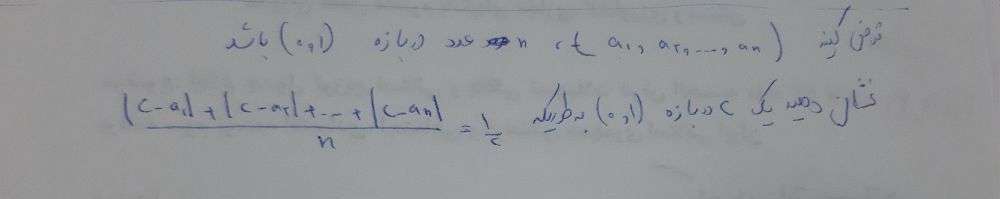 فرض کنید a₁, a₂, ..., an تا n عدد در بازه (۰,۱) باشد
نشان دهید یک c در بازه (۰,۱) به طوریکه (|c-a₁| + |c-a₂| + ... + |c-an|)/n = ۱/۲